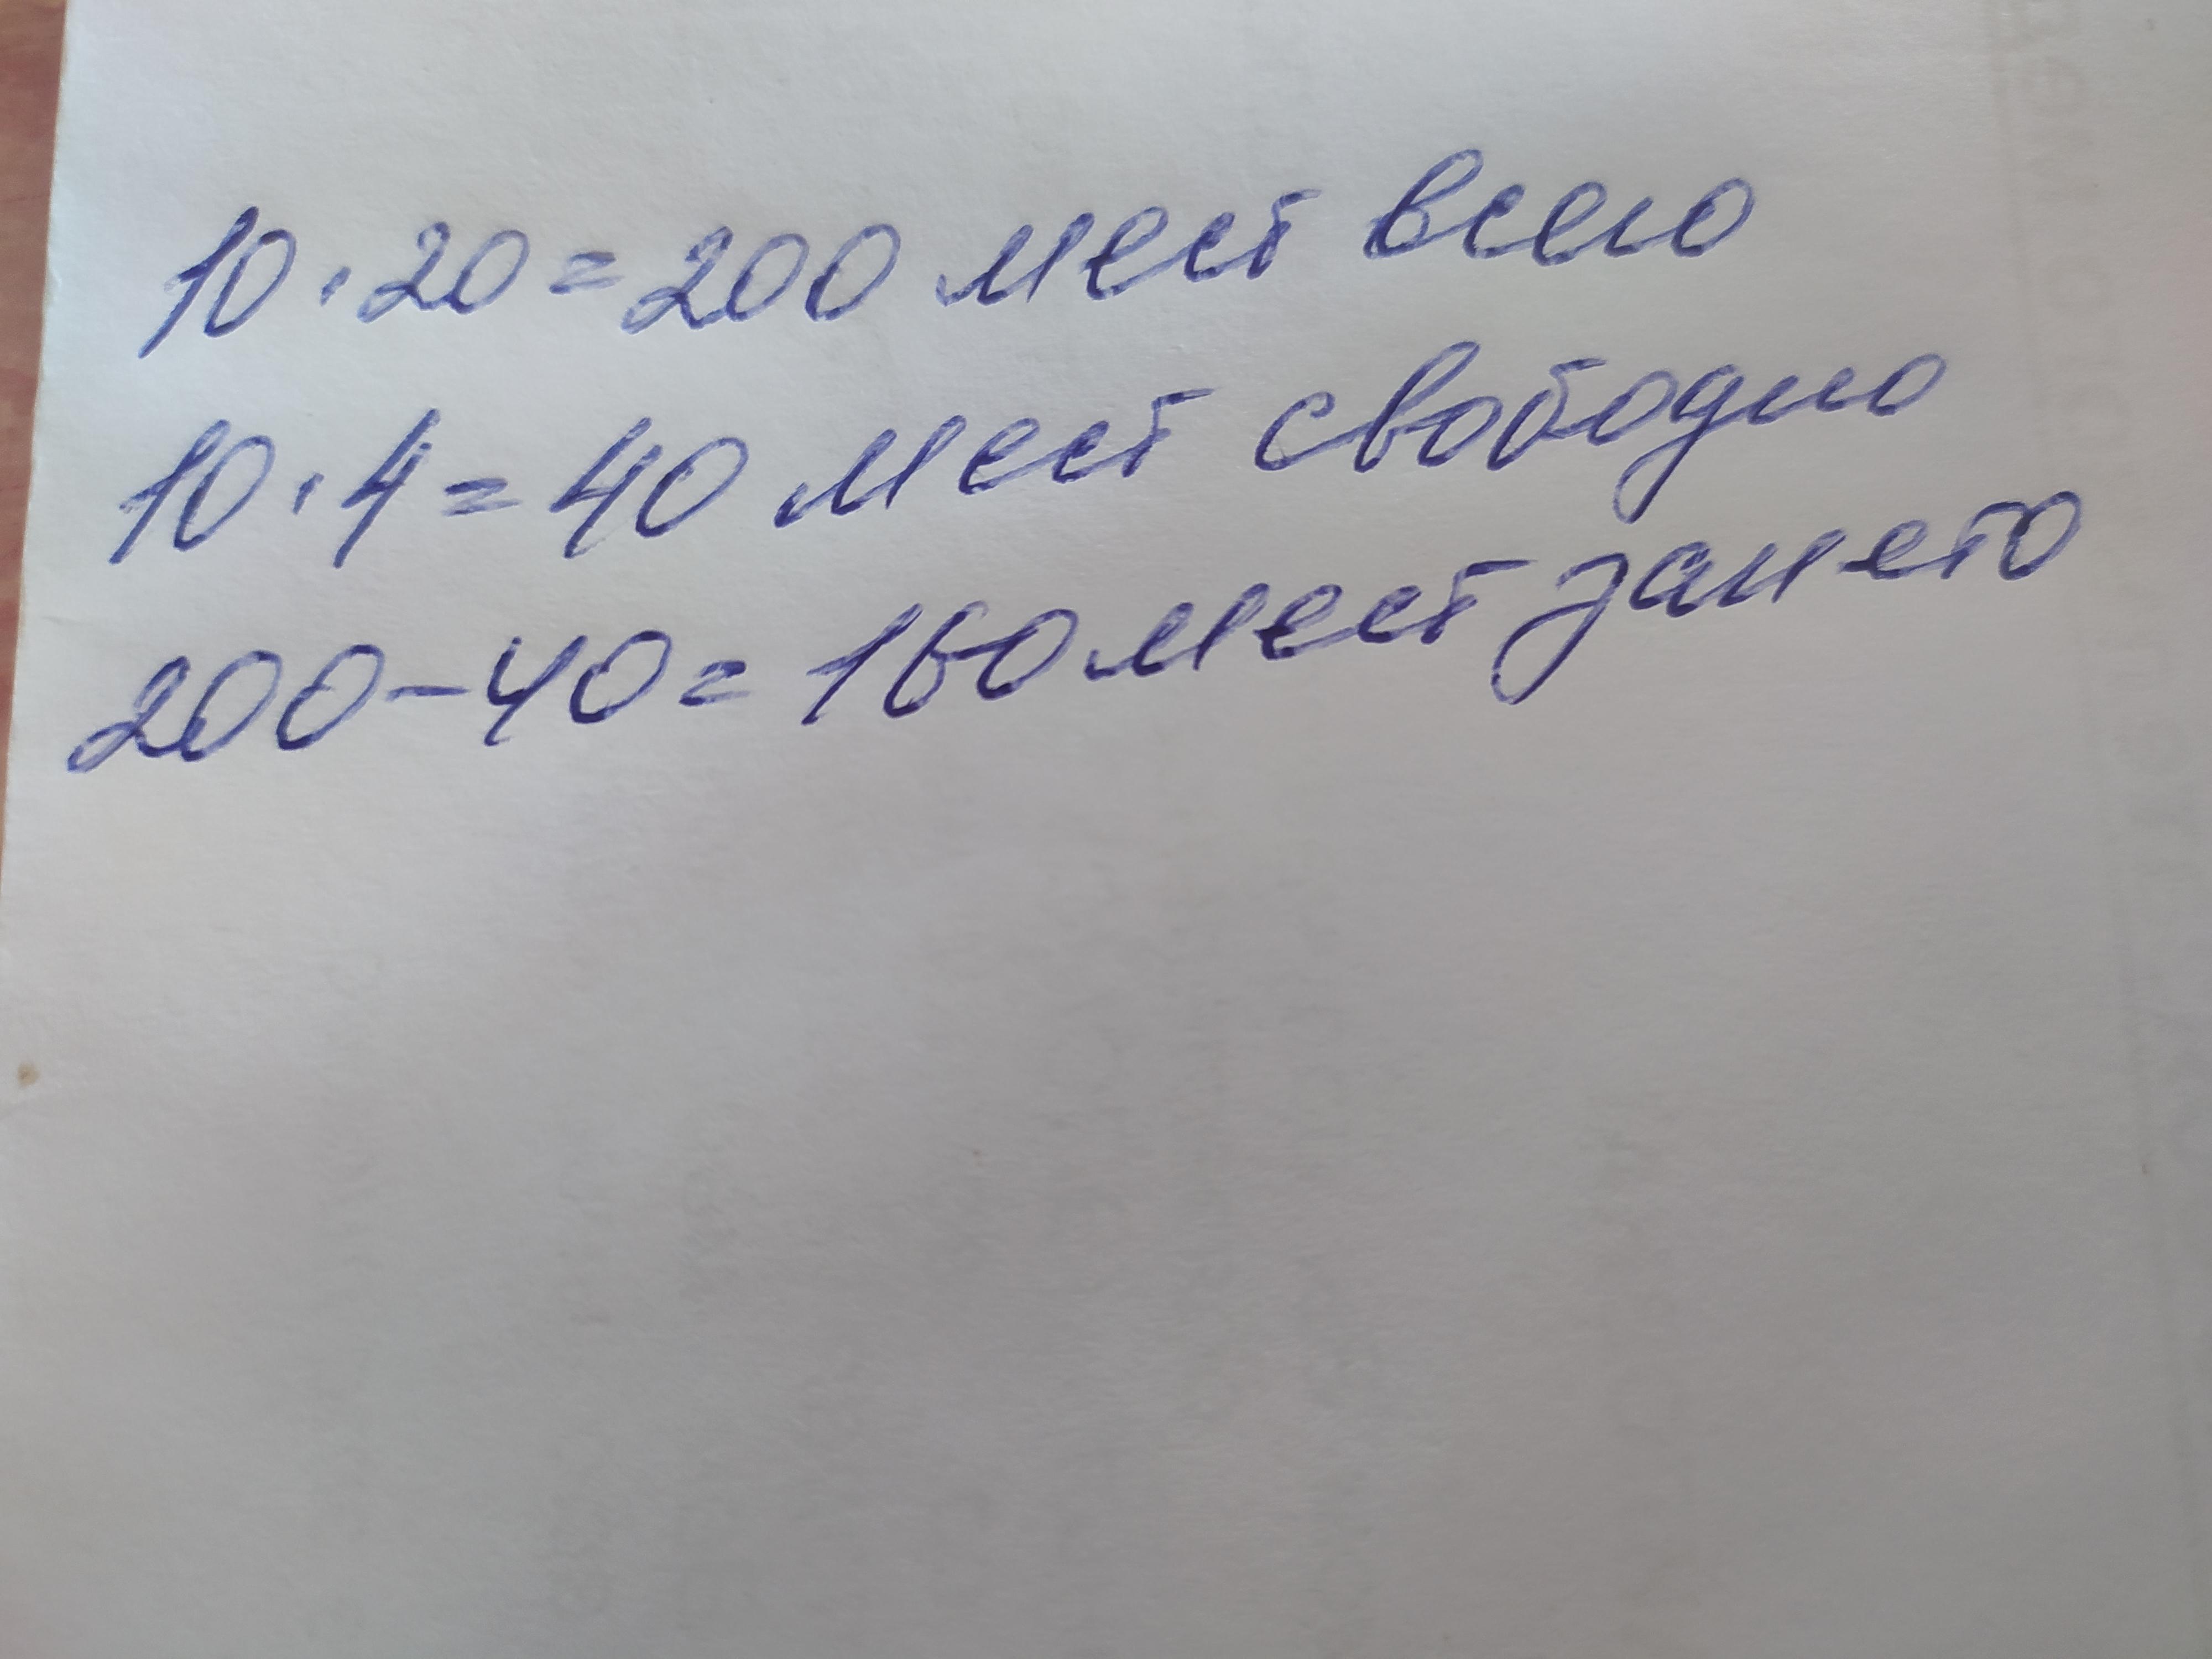 10 · 20 = 200 мест всего
10 · 4 = 40 мест свободно
200 - 40 = 160 мест зането